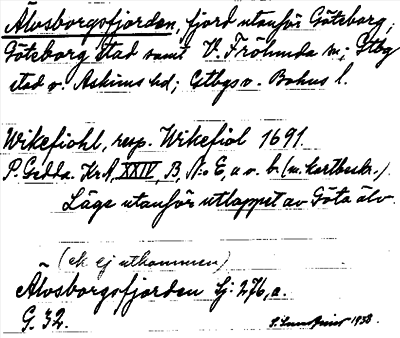 Älvsborgsfjorden, fjord utanför Göteborg;
Göteborg stad samt V. Frölunda sn; Gtbg
stad o. Askims hd; Gtbgs o. Bohus l.
Wikefiohl, resp. Wikefiol 1691.
P. Gedda. Kr A, XXIV, B, N:o E, a o. b. (m. kartbeskr.)
Läge utanför utloppet av Göta älv.
(ek ej utkommen)
Älvsborgsfjorden Sj: 276, a.
G. 32.
1938.